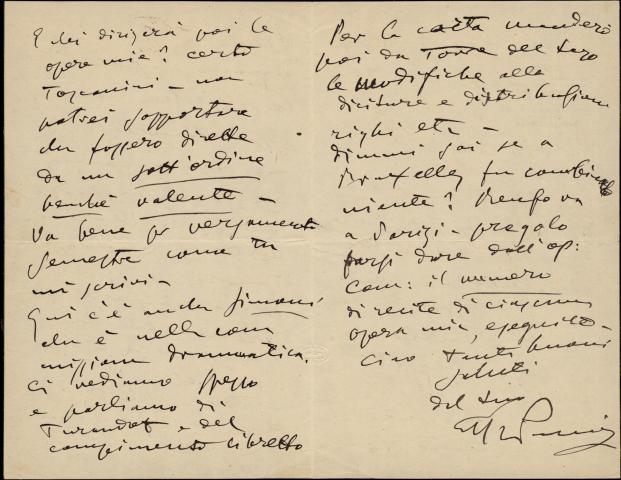 E chi dirigerà poi le
opere mie? certo
Toscanini – non
potrei sopportare
che fossero dirette
da un sott'ordine
benchè valente –
Va bene per versamento
semestre come tu
mi scrivi –
Qui c'è anche Simoni
che è nella com
missione drammatica.
Ci vediamo spesso
e parliamo di
Turandot e del
compimento libretto
Per la carta manderò
poi da Torre del Lago
le modifiche alla
diciture e distribuzione
righi etc –
Dimmi poi se a
Bruxelles fu combinato
niente? Renzo va
a Parigi – pregalo
farsi dare dall'op:
Com: il numero
di recite di ciascuna
opera mia, eseguite –
Ciao tanti buoni
saluti
del tuo
Puccini